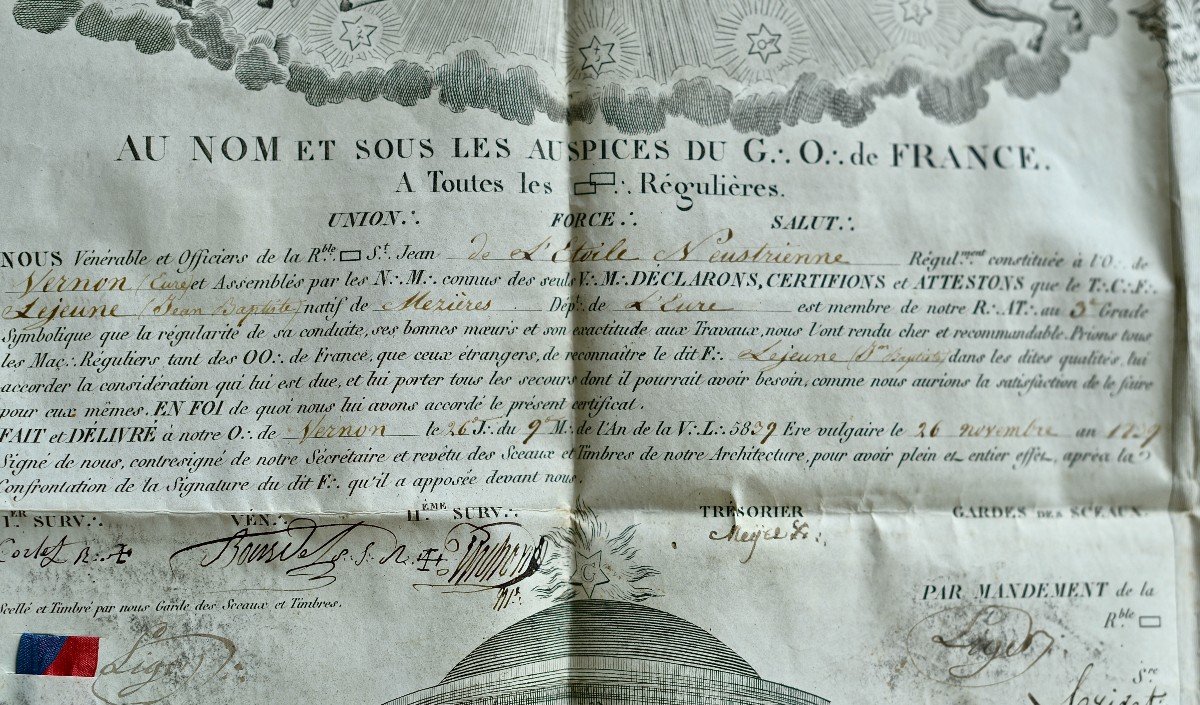 AU NOM ET SOUS LES AUSPICES DU G∴ O∴ de FRANCE.
A Toutes les ∴ Régulières.
UNION∴ FORCE∴ SALUT∴
NOUS Vénérable et Officiers de la R.ble St. Jean de L'Etoile Neustrienne Régul.ment constituée à l'O∴ de
Vernon (Eure) et Assemblés par les N∴ M∴ connus des seuls V∴ M∴ DÉCLARONS, CERTIFIONS et ATTESTONS que le T∴ C∴ F∴
Lejeune (Jean Baptiste) natif de Mezières Dép.t de L'Eure est membre de notre R∴ AT∴ au 3e Grade
Symbolique que la régularité de sa conduite, ses bonnes mœurs et son exactitude aux Travaux, nous l'ont rendu cher et recommandable. Prions tous
les Maç∴ Réguliers tant des OO∴ de France, que ceux étrangers, de reconnaître le dit F∴ Lejeune (Jn Baptiste) dans les dites qualités, lui
accorder la considération qui lui est due, et lui porter tous les secours dont il pourrait avoir besoin, comme nous aurions la satisfaction de le faire
pour eux mêmes. EN FOI de quoi nous lui avons accordé le présent certificat.
FAIT et DÉLIVRÉ à notre O∴ de Vernon le 26e J∴ du 9e M∴ de l'An de la V∴ L∴ 5839 Ere vulgaire le 26 novembre an 1839
Signé de nous, contresigné de notre Sécrétaire et revêtu des Sceaux et Timbres de notre Architecture, pour avoir plein et entier effèt, après la
Confrontation de la Signature du dit F∴ qu'il a apposée devant nous.
1.ER SURV∴ VÉN∴ II.ÈME SURV∴ TRÉSORIER GARDES DES SCEAUX
R
G
Scellé et Timbré par nous Garde des Sceaux et Timbres.
PAR MANDEMENT de la
R.ble
Liger
Liger
S.re